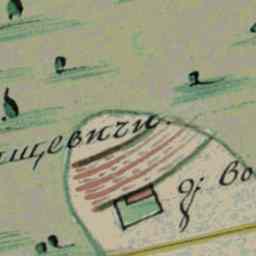 ищевичи.
д: Во